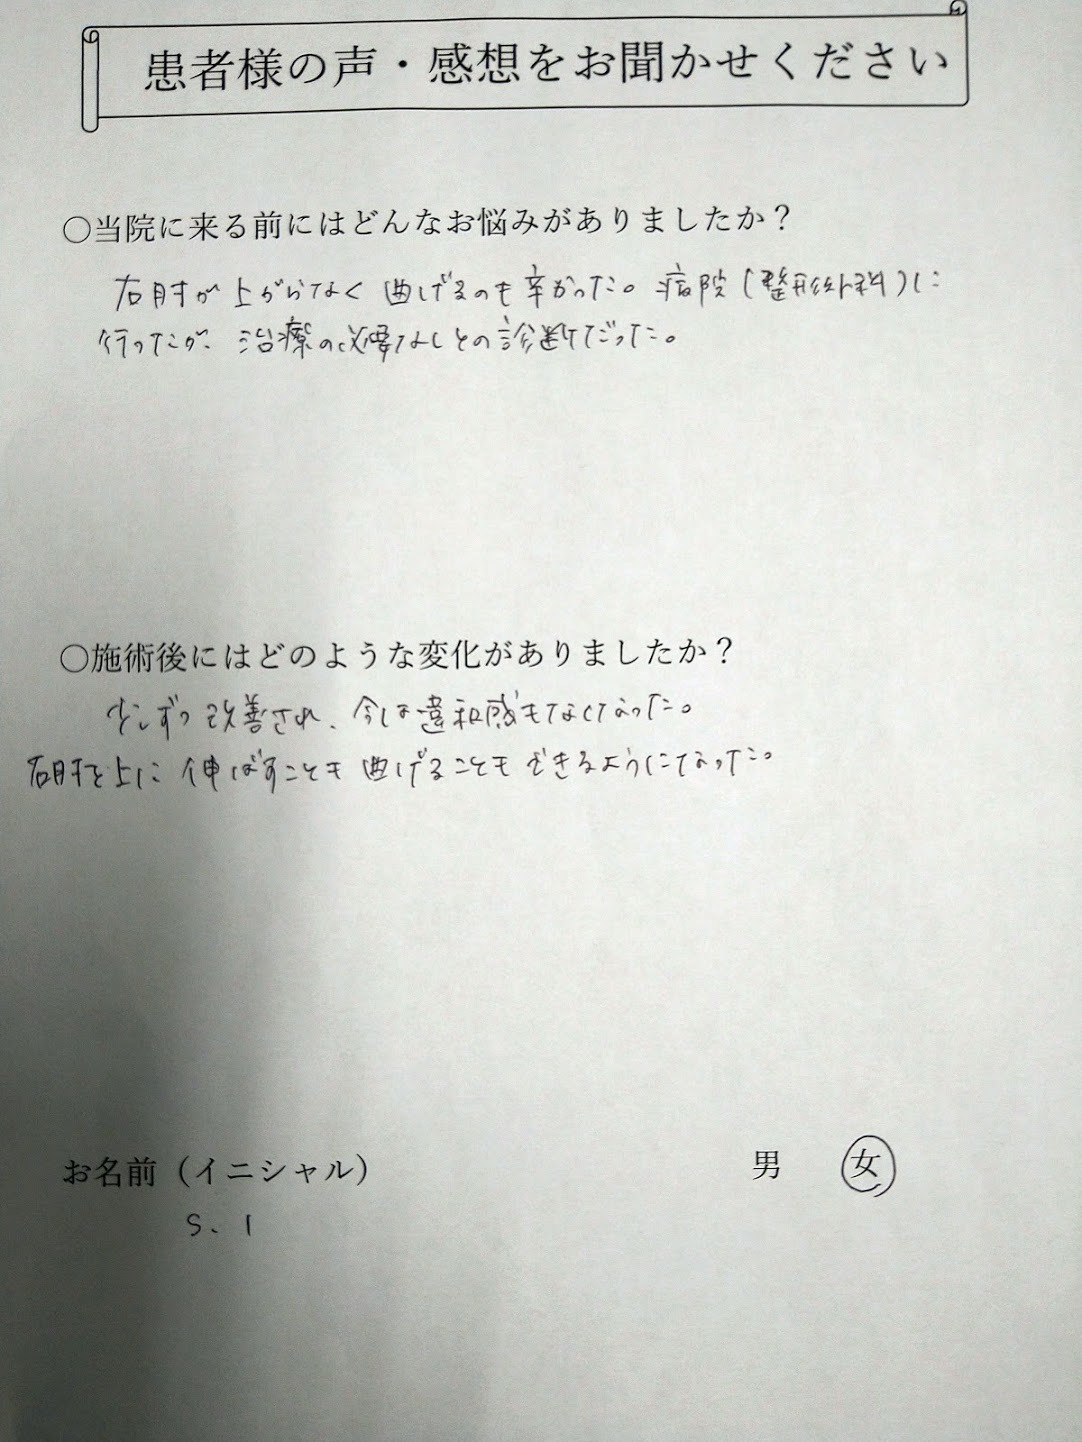 患者様の声・感想をお聞かせください
○当院に来る前にはどんなお悩みがありましたか？
右肘が上がらなく曲げるのも辛かった。病院(整形外科)に
行ったが、治療の必要なしとの診断だった。
○施術後にはどのような変化がありましたか？
少しずつ改善され、今は違和感もなくなった。
右肘を上に伸ばすことも曲げることもできるようになった。
お名前（イニシャル）
男 女
S. I